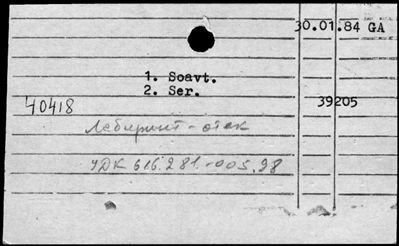 30.01.84 GA
1. Soavt.
2. Ser.
40418 39205
Лабиринт-отек
УДК 616.281.-005.98